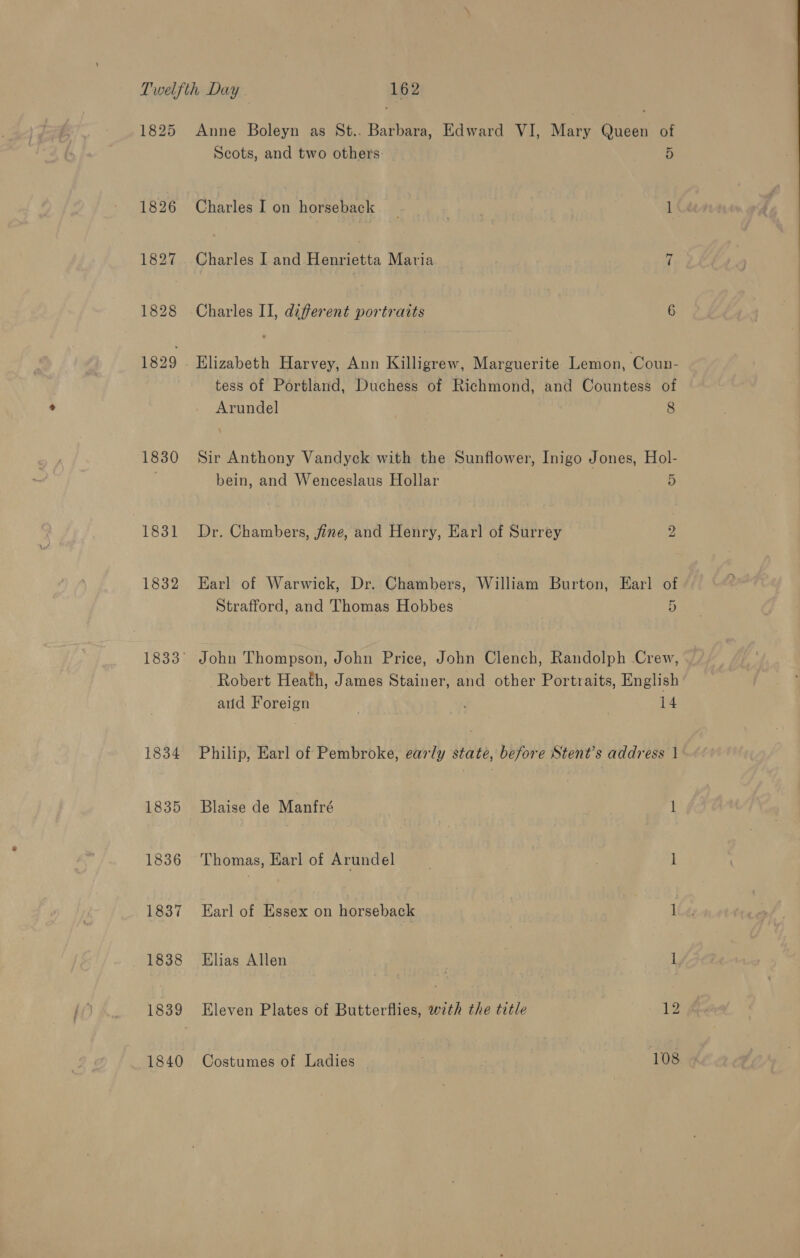 Twelfth Day 162
1825 Anne Boleyn as St.. Barbara, Edward VI, Mary Queen of
Scots, and two others 5
1826 Charles I on horseback 1
1827 Charles I and Henrietta Maria 7
1828 Charles II, different portraits 6
1829 Elizabeth Harvey, Ann Killigrew, Marguerite Lemon, Coun-
tess of Portland, Duchess of Richmond, and Countess of
Arundel 8
1830 Sir Anthony Vandyck with the Sunflower, Inigo Jones, Hol-
bein, and Wenceslaus Hollar 5
1831 Dr. Chambers, fine, and Henry, Earl of Surrey 2
1832 Earl of Warwick, Dr. Chambers, William Burton, Earl of
Strafford, and Thomas Hobbes 5
1833 John Thompson, John Price, John Clench, Randolph Crew,
Robert Heath, James Stainer, and other Portraits, English
and Foreign 14
1834 Philip, Earl of Pembroke, early state, before Stent's address 1
1835 Blaise de Manfré 1
1836 Thomas, Earl of Arundel 1
1837 Earl of Essex on horseback 1
1838 Elias Allen 1
1839 Eleven Plates of Butterflies, with the title 12
1840 Costumes of Ladies 108